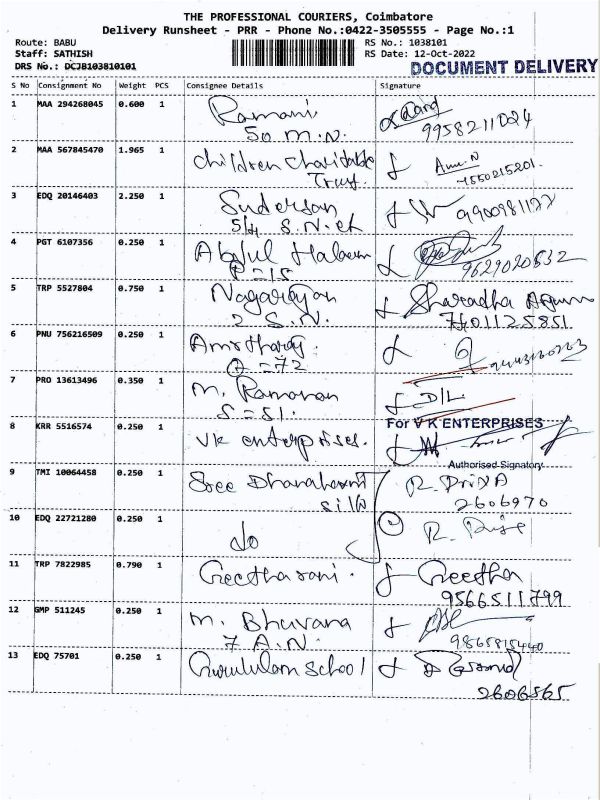 THE PROFESSIONAL COURIERS, Coimbatore
Delivery Runsheet - PRR - Phone No.:0422-3505555 - Page No.:1
Route: BABU
Staff: SATHISH
DRS No.: DCJB103810101
RS No.: 1038101
RS Date: 12-Oct-2022
DOCUMENT DELIVERY
S No Consignment No Weight PCS Consignee Details Signature
1 MAA 294268045 0.600 1 Ramani
50 M.N. 9958211024
2 MAA 567845470 1.965 1 Children Charitable
Trust.
3 EDQ 20146403 2.250 1 Sudersan
5/4 S.N.
4 PGT 6107356 0.250 1 Abdul Haleem
P=15 9629020532
5 TRP 5527804 0.750 1 Nagarajan Sharadha
2 S.N. 7401125851
6 PNU 756216509 0.250 1
=72
7 PRO 13613496 0.350 1 M. Ramanan D/L
S=51.
8 KRR 5516574 0.250 1 VK enterprises. For V K ENTERPRISES
Authorised Signatory
9 TMI 10064458 0.250 1 Sree R. PriyA
silk 2606970
10 EDQ 22721280 0.250 1 do R.
11 TRP 7822985 0.790 1 Geetha rani. Geetha
9566511799
12 GMP 511245 0.250 1 M. Bhuvana
7 A.N.
13 EDQ 75701 0.250 1 Gurukulam School
2606565